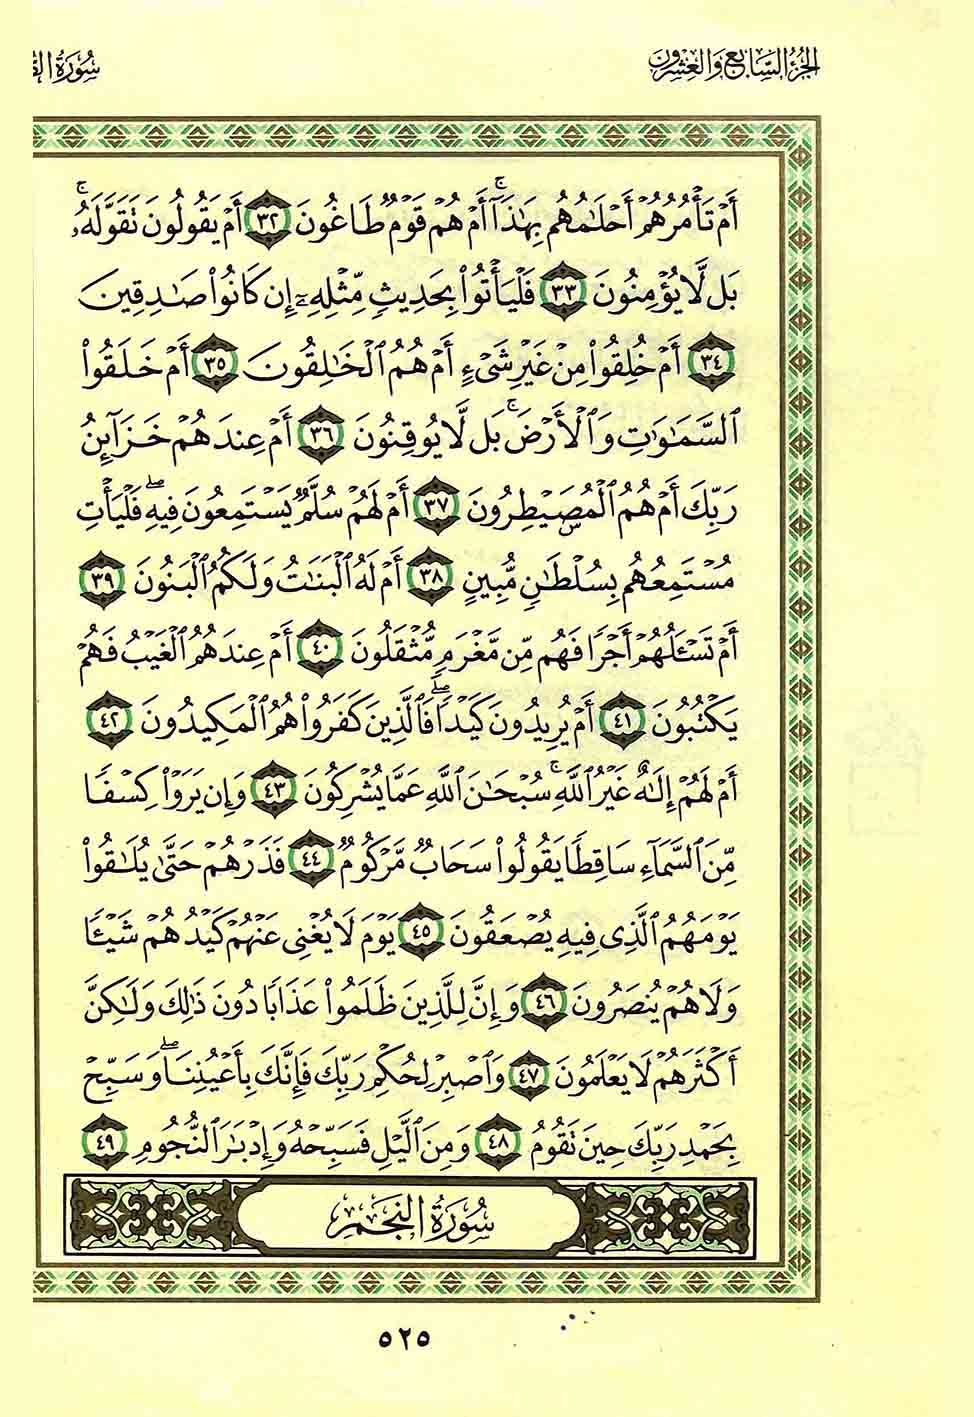 الجزء السابع والعشرون
سورة
أَمْ تَأْمُرُهُمْ أَحْلَٰمُهُم بِهَٰذَآ ۚ أَمْ هُمْ قَوْمٌ طَاغُونَ ٣٢ أَمْ يَقُولُونَ تَقَوَّلَهُۥ ۚ
بَل لَّا يُؤْمِنُونَ ٣٣ فَلْيَأْتُوا۟ بِحَدِيثٍ مِّثْلِهِۦٓ إِن كَانُوا۟ صَٰدِقِينَ
٣٤ أَمْ خُلِقُوا۟ مِنْ غَيْرِ شَىْءٍ أَمْ هُمُ ٱلْخَٰلِقُونَ ٣٥ أَمْ خَلَقُوا۟
ٱلسَّمَٰوَٰتِ وَٱلْأَرْضَ ۚ بَل لَّا يُوقِنُونَ ٣٦ أَمْ عِندَهُمْ خَزَآئِنُ
رَبِّكَ أَمْ هُمُ ٱلْمُصَۣيْطِرُونَ ٣٧ أَمْ لَهُمْ سُلَّمٌ يَسْتَمِعُونَ فِيهِ ۖ فَلْيَأْتِ
مُسْتَمِعُهُم بِسُلْطَٰنٍ مُّبِينٍ ٣٨ أَمْ لَهُ ٱلْبَنَٰتُ وَلَكُمُ ٱلْبَنُونَ ٣٩
أَمْ تَسْـَٔلُهُمْ أَجْرًا فَهُم مِّن مَّغْرَمٍ مُّثْقَلُونَ ٤٠ أَمْ عِندَهُمُ ٱلْغَيْبُ فَهُمْ
يَكْتُبُونَ ٤١ أَمْ يُرِيدُونَ كَيْدًا ۖ فَٱلَّذِينَ كَفَرُوا۟ هُمُ ٱلْمَكِيدُونَ ٤٢
أَمْ لَهُمْ إِلَٰهٌ غَيْرُ ٱللَّهِ ۚ سُبْحَٰنَ ٱللَّهِ عَمَّا يُشْرِكُونَ ٤٣ وَإِن يَرَوْا۟ كِسْفًا
مِّنَ ٱلسَّمَآءِ سَاقِطًا يَقُولُوا۟ سَحَابٌ مَّرْكُومٌ ٤٤ فَذَرْهُمْ حَتَّىٰ يُلَٰقُوا۟
يَوْمَهُمُ ٱلَّذِى فِيهِ يُصْعَقُونَ ٤٥ يَوْمَ لَا يُغْنِى عَنْهُمْ كَيْدُهُمْ شَيْـًٔا
وَلَا هُمْ يُنصَرُونَ ٤٦ وَإِنَّ لِلَّذِينَ ظَلَمُوا۟ عَذَابًا دُونَ ذَٰلِكَ وَلَٰكِنَّ
أَكْثَرَهُمْ لَا يَعْلَمُونَ ٤٧ وَٱصْبِرْ لِحُكْمِ رَبِّكَ فَإِنَّكَ بِأَعْيُنِنَا ۖ وَسَبِّحْ
بِحَمْدِ رَبِّكَ حِينَ تَقُومُ ٤٨ وَمِنَ ٱلَّيْلِ فَسَبِّحْهُ وَإِدْبَٰرَ ٱلنُّجُومِ ٤٩
سُورَةُ النَّجْمِ
٥٢٥